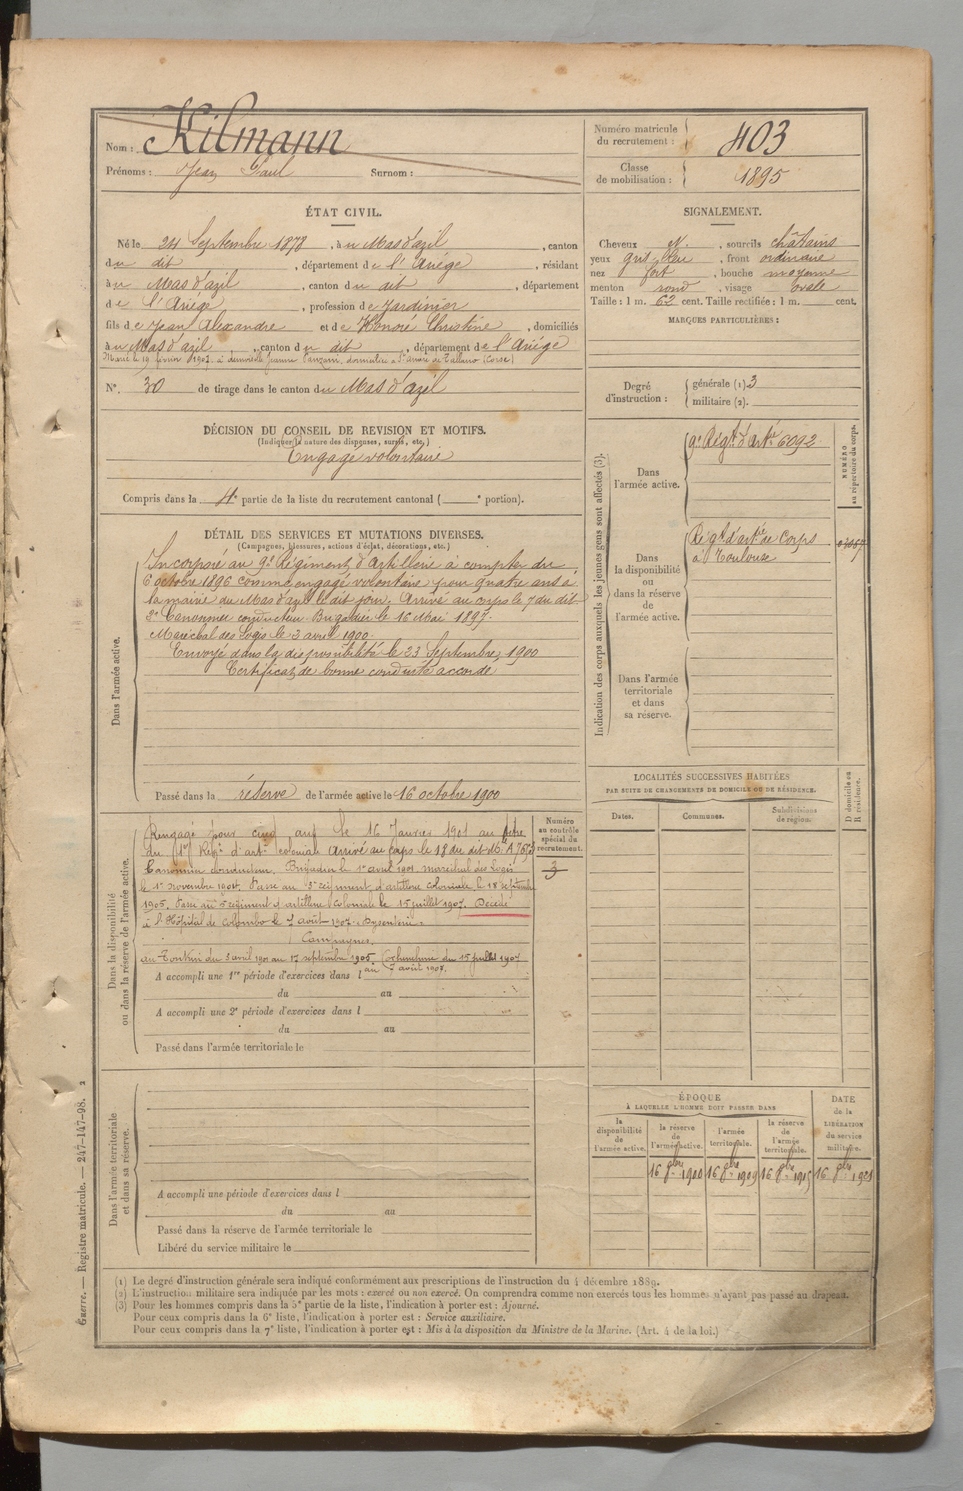 Nom : Kilmann
Prénoms : Jean Paul Surnom :
Numéro matricule du recrutement : 403
Classe de mobilisation : 1895
ÉTAT CIVIL.
Né le 24 Septembre 1878, à u Mas d'azil, canton
du dit, département de l'Ariége, résidant
à u Mas d'azil, canton du dit, département
de l'Ariége, profession de Jardinier
fils de Jean Alexandre et de Honoré Christine, domiciliés
à u Mas d'azil, canton du dit, département de l'Ariége
Marié le 19 février 1907 à demoiselle Jeanne Panzani, domiciliée à Tallano (Corse)
N°. 30 de tirage dans le canton du Mas d'azil
SIGNALEMENT.
Cheveux N., sourcils châtains
yeux gris bleu, front ordinaire
nez fort, bouche moyenne
menton rond, visage ovale
Taille : 1 m. 62 cent. Taille rectifiée : 1 m. cent.
MARQUES PARTICULIÈRES :
Degré d'instruction : générale (1) 3
militaire (2).
DÉCISION DU CONSEIL DE REVISION ET MOTIFS.
(Indiquer la nature des dispenses, sursis, etc.)
Engagé volontaire
Compris dans la 4e partie de la liste du recrutement cantonal ( e portion).
DÉTAIL DES SERVICES ET MUTATIONS DIVERSES.
(Campagnes, blessures, actions d'éclat, décorations, etc.)
Dans l'armée active.
Incorporé au 9e Régiment d'artillerie à compter du
6 octobre 1896 comme engagé volontaire pour quatre ans à
la mairie du Mas d'azil le dit jour. Arrivé au corps le 7 du dit
2e Canonnier conducteur. Brigadier le 16 Mai 1897.
Maréchal des Logis le 3 avril 1900.
Envoyé dans la disponibilité le 23 Septembre 1900
Certificat de bonne conduite accordé
Passé dans la réserve de l'armée active le 16 octobre 1900
Indication des corps auxquels les jeunes gens sont affectés (3).
NUMÉRO au répertoire du corps.
Dans l'armée active.
9e Régt d'Artie 6092
Dans la disponibilité ou dans la réserve de l'armée active.
Régt d'artie de Corps
à Toulouse
Dans l'armée territoriale et dans sa réserve.
Dans la disponibilité ou dans la réserve de l'armée active.
Numéro au contrôle spécial du recrutement.
3
Rengagé pour cinq ans le 16 Janvier 1901 au
du 1er Régt d'artie coloniale Arrivé au corps le 18 du dit
Canonnier conducteur, Brigadier le 1er avril 1901 marechal des Logis
le 1er novembre 1904. Passé au 3e régiment d'artillerie coloniale le 18 septembre
1905. Passé au 5e régiment d'artillerie coloniale le 15 juillet 1907. Décédé
à l'Hôpital de Colombo le 7 août 1907. Dysenterie.
Campagnes.
au Tonkin du 3 avril 1901 au 17 septembre 1905. Cochinchine du 15 juillet 1907
au 7 août 1907.
A accompli une 1re période d'exercices dans l
du au
A accompli une 2e période d'exercices dans l
du au
Passé dans l'armée territoriale le
LOCALITÉS SUCCESSIVES HABITÉES
PAR SUITE DE CHANGEMENTS DE DOMICILE OU DE RÉSIDENCE.
D domicile ou R résidence.
Dates. Communes. Subdivisions de région.
Dans l'armée territoriale et dans sa réserve.
A accompli une période d'exercices dans l
du au
Passé dans la réserve de l'armée territoriale le
Libéré du service militaire le
ÉPOQUE
À LAQUELLE L'HOMME DOIT PASSER DANS
DATE de la LIBÉRATION du service militaire.
la disponibilité de l'armée active.
la réserve de l'armée active.
l'armée territoriale.
la réserve de l'armée territoriale.
16 8bre 1900 16 8bre 1909 16 8bre 1915 16 8bre 1921
(1) Le degré d'instruction générale sera indiqué conformément aux prescriptions de l'instruction du 4 décembre 1889.
(2) L'instruction militaire sera indiquée par les mots : exercé ou non exercé. On comprendra comme non exercés tous les hommes n'ayant pas passé au drapeau.
(3) Pour les hommes compris dans la 5e partie de la liste, l'indication à porter est : Ajourné.
Pour ceux compris dans la 6e liste, l'indication à porter est : Service auxiliaire.
Pour ceux compris dans la 7e liste, l'indication à porter est : Mis à la disposition du Ministre de la Marine. (Art. 4 de la loi.)
Guerre. — Registre matricule. — 247-147-98. 2